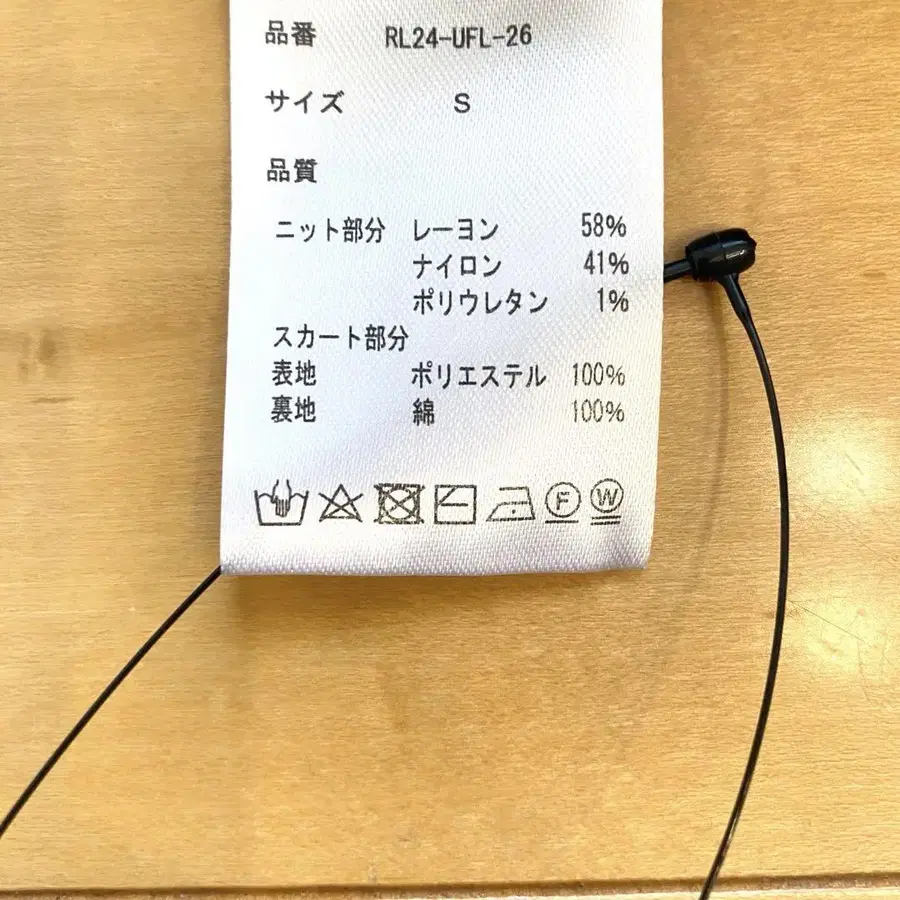 品番 RL24-UFL-26
サイズ S
品質
ニット部分 レーヨン 58%
ナイロン 41%
ポリウレタン 1%
スカート部分
表地 ポリエステル 100%
裏地 綿 100%
F W